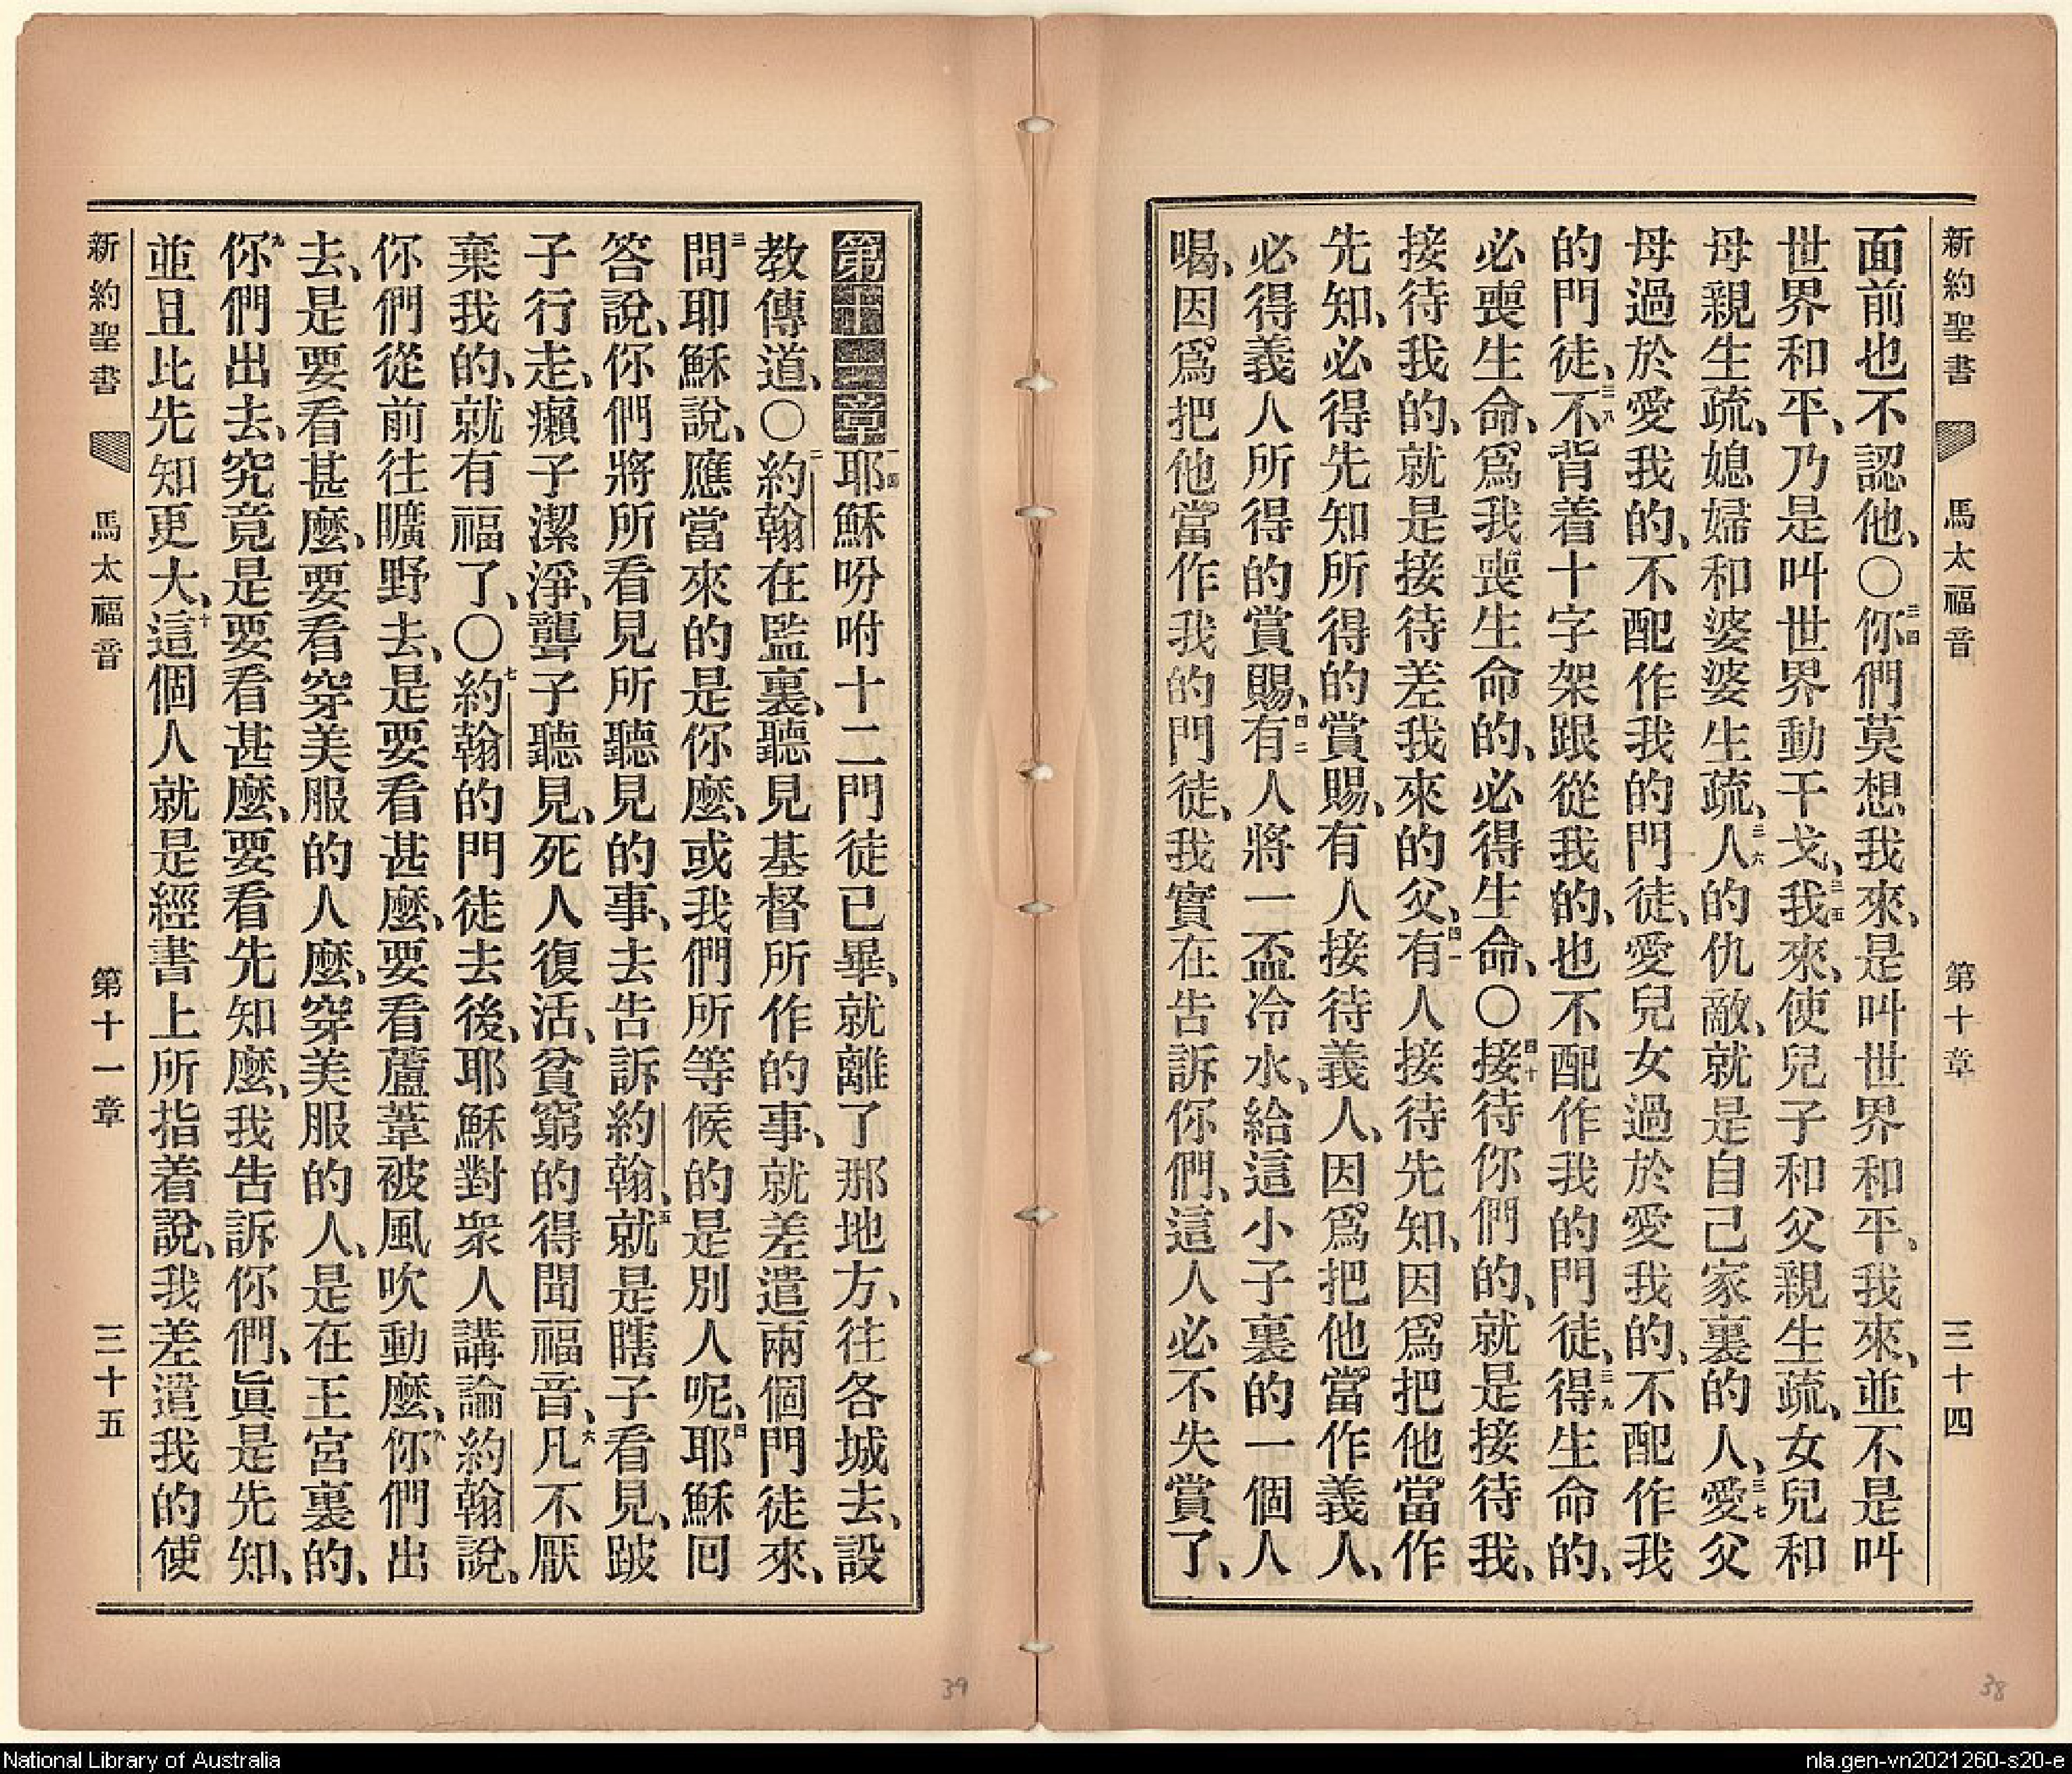 新約聖書 馬太福音 第十章 三十四
面前也不認他、〇三四你們莫想我來、是叫世界和平、我來、並不是叫
世界和平、乃是叫世界動干戈、三五我來、使兒子和父親生疏、女兒和
母親生疏、媳婦和婆婆生疏、三六人的仇敵、就是自己家裏的人、三七愛父
母過於愛我的、不配作我的門徒、愛兒女過於愛我的、不配作我
的門徒、三八不背着十字架跟從我的、也不配作我的門徒、三九得生命的、
必喪生命、爲我喪生命的、必得生命、〇四十接待你們的、就是接待我、
接待我的、就是接待差我來的父、四一有人接待先知、因爲把他當作
先知、必得先知所得的賞賜、有人接待義人、因爲把他當作義人、
必得義人所得的賞賜、四二有人將一盃冷水、給這小子裏的一個人
喝、因爲把他當作我的門徒、我實在告訴你們、這人必不失賞了、
第十一章一耶穌吩咐十二門徒已畢、就離了那地方、往各城去、設
教傳道、〇二約翰在監裏、聽見基督所作的事、就差遣兩個門徒來、
三問耶穌說、應當來的是你麼、或我們所等候的是別人呢、四耶穌囘
答說、你們將所看見所聽見的事、去告訴約翰、五就是瞎子看見、跛
子行走、癩子潔淨、聾子聽見、死人復活、貧窮的得聞福音、六凡不厭
棄我的、就有福了、〇七約翰的門徒去後、耶穌對衆人講論約翰說、
你們從前往曠野去、是要看甚麼、要看蘆葦被風吹動麼、八你們出
去、是要看甚麼、要看穿美服的人麼、穿美服的人、是在王宮裏的、
九你們出去、究竟是要看甚麼、要看先知麼、我告訴你們、眞是先知、
並且比先知更大、十這個人就是經書上所指着說、我差遣我的使
新約聖書 馬太福音 第十一章 三十五
39
38
National Library of Australia
nla.gen-vn2021260-s20-e